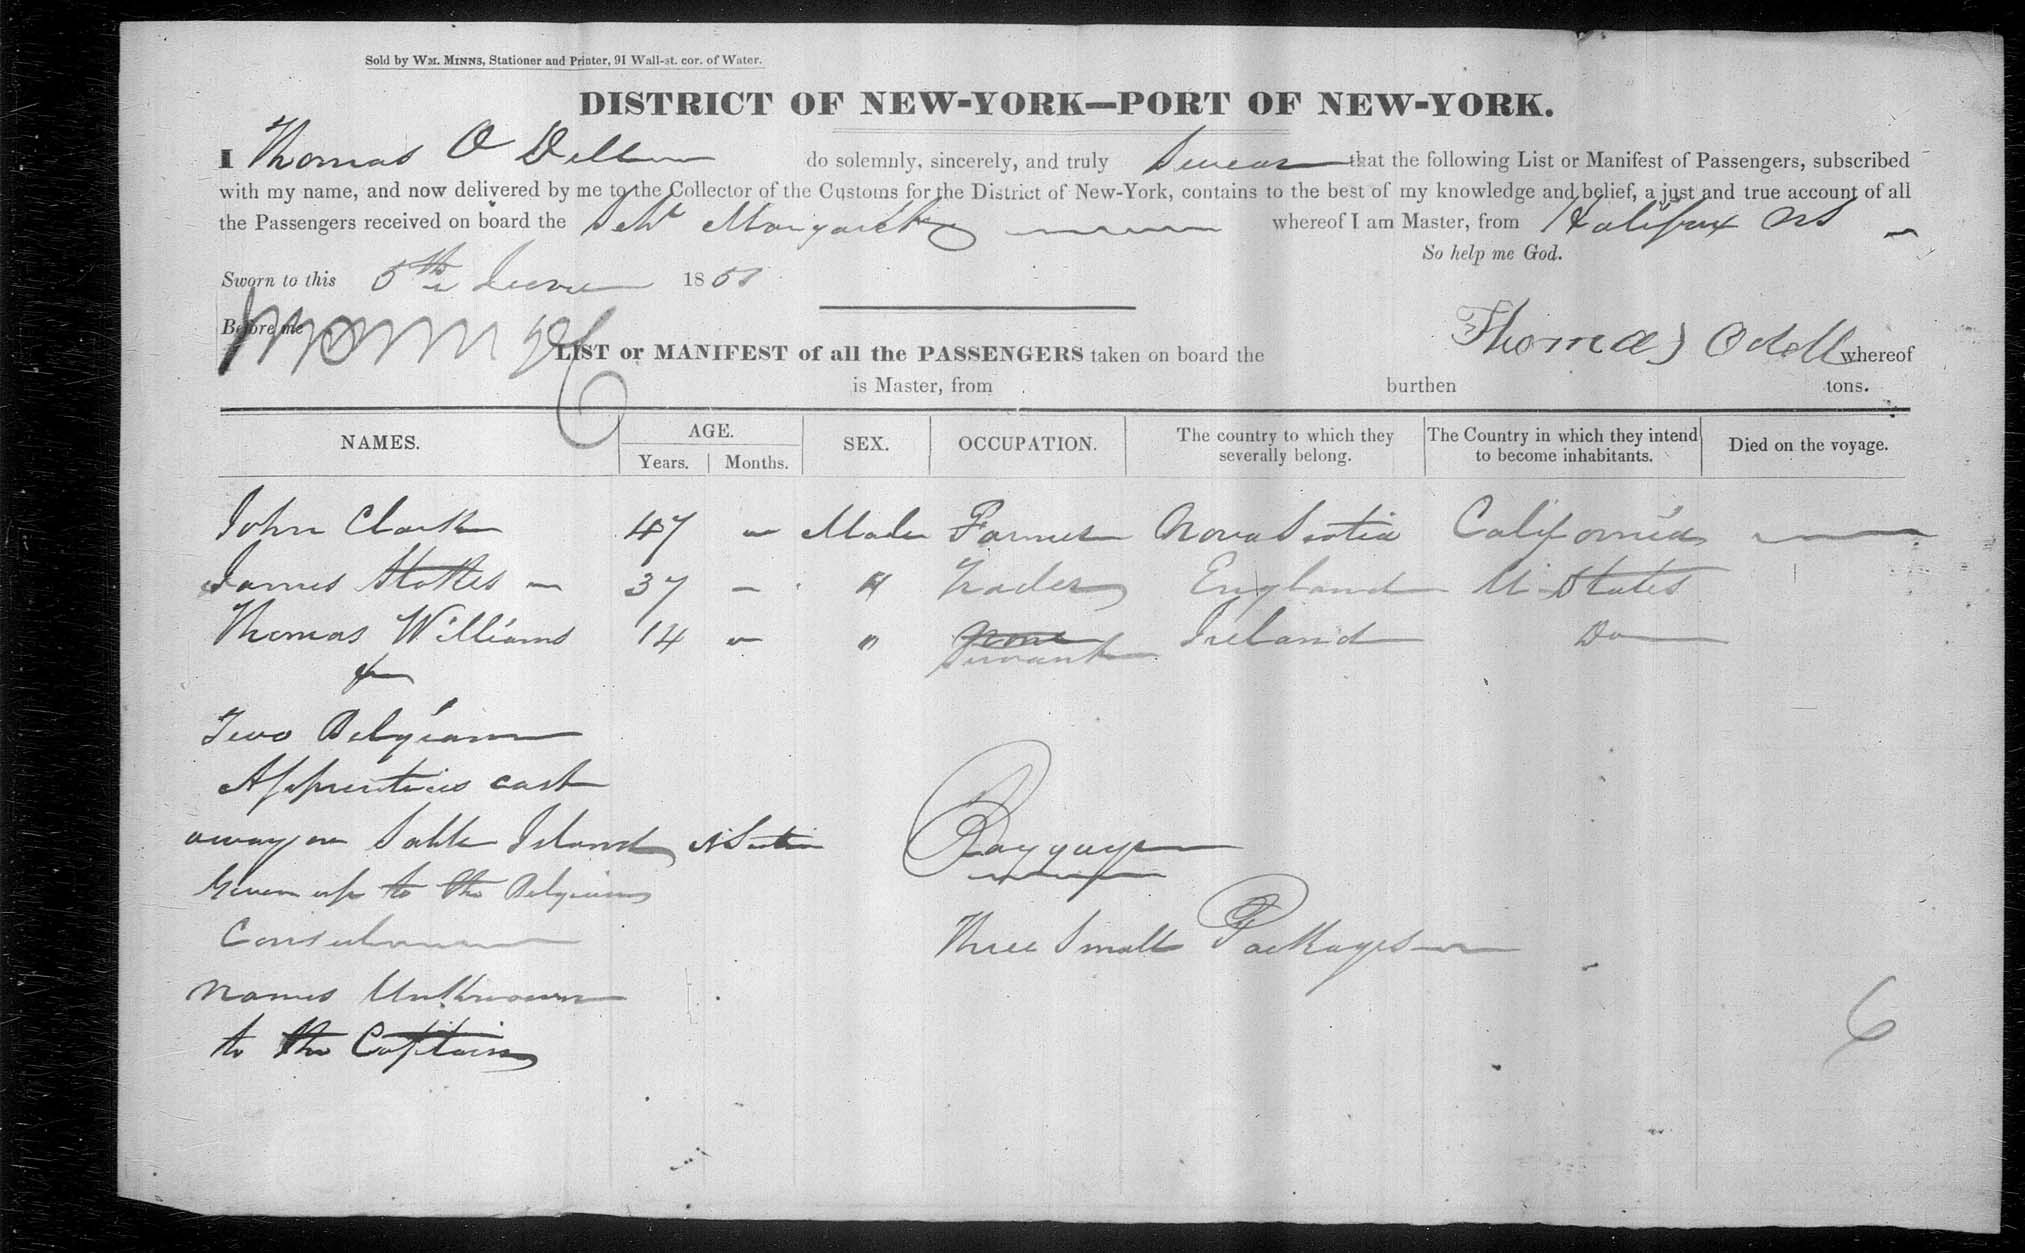 Sold by WM. MINNS, Stationer and Printer, 91 Wall-st. cor. of Water.
DISTRICT OF NEW-YORK—PORT OF NEW-YORK.
I Thomas O Dell do solemnly, sincerely, and truly Swear that the following List or Manifest of Passengers, subscribed
with my name, and now delivered by me to the Collector of the Customs for the District of New-York, contains to the best of my knowledge and belief, a just and true account of all
the Passengers received on board the Schr Margaret whereof I am Master, from Halifax NS
So help me God.
Sworn to this 5th June 185
Before me
Thomas Odell
LIST or MANIFEST of all the PASSENGERS taken on board the whereof
is Master, from burthen tons.
NAMES. AGE. Years. Months. SEX. OCCUPATION. The country to which they severally belong. The Country in which they intend to become inhabitants. Died on the voyage.
John Clark 47 Male Farmer Nova Scotia California
James Stokes 37 " Trader England U States
Thomas Williams 14 " None Servant Ireland Do
Two Belgian
Apprentices cast
away on Sable Island N Scotia
Given up to the Belgian
Consul
Names Unknown
to the Captain
Baggage
Three Small Packages
6